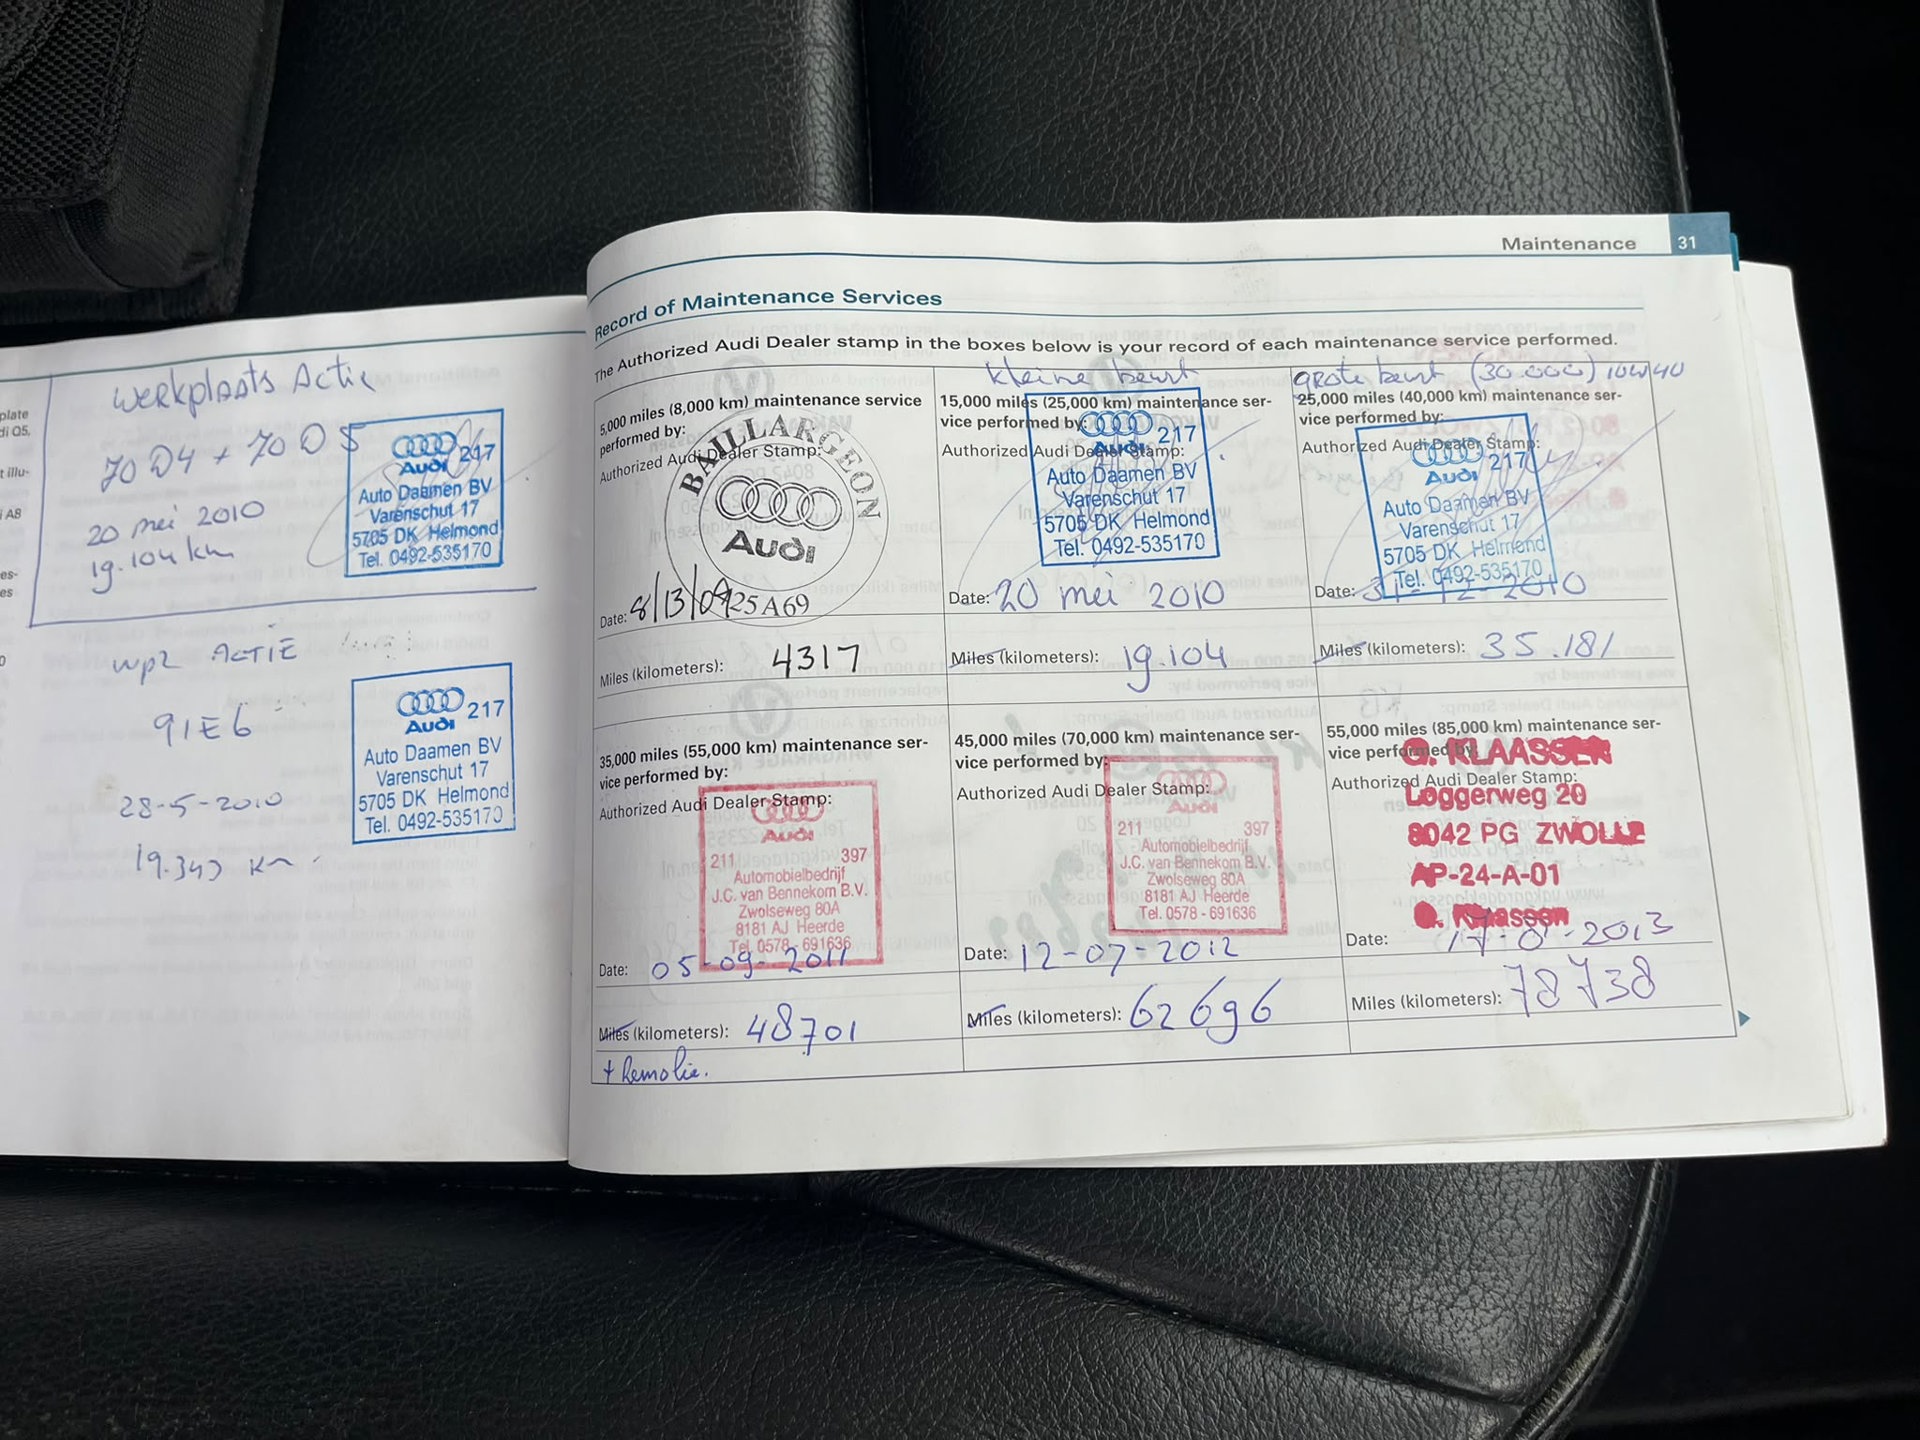 plate
di Q5,
t illu-
i A8
es-
es
werkplaats Actie
70D4 + 70D5
20 mei 2010
19.104 km
Audi 217
Auto Daamen BV
Varenschut 17
5705 DK Helmond
Tel. 0492-535170
wpl ACTIE
91E6
28-5-2010
19.343 km
Audi 217
Auto Daamen BV
Varenschut 17
5705 DK Helmond
Tel. 0492-535170
Maintenance 31
Record of Maintenance Services
The Authorized Audi Dealer stamp in the boxes below is your record of each maintenance service performed.
5,000 miles (8,000 km) maintenance service
performed by:
Authorized Audi Dealer Stamp:
BAILLARGEON
Audi
425A69
Date: 8/13/09
Miles (kilometers): 4317
kleine beurt
15,000 miles (25,000 km) maintenance ser-
vice performed by:
Authorized Audi Dealer Stamp:
Audi 217
Auto Daamen BV
Varenschut 17
5705 DK Helmond
Tel. 0492-535170
Date: 20 mei 2010
Miles (kilometers): 19.104
grote beurt (30.000) 10W40
25,000 miles (40,000 km) maintenance ser-
vice performed by:
Authorized Audi Dealer Stamp:
Audi 217
Auto Daamen BV
Varenschut 17
5705 DK Helmond
Tel. 0492-535170
Date: 31-12-2010
Miles (kilometers): 35.181
35,000 miles (55,000 km) maintenance ser-
vice performed by:
Authorized Audi Dealer Stamp:
Audi
211 397
Automobielbedrijf
J.C. van Bennekom B.V.
Zwolseweg 80A
8181 AJ Heerde
Tel. 0578 - 691636
Date: 05-09-2011
Miles (kilometers): 48701
+ Remolie.
45,000 miles (70,000 km) maintenance ser-
vice performed by:
Authorized Audi Dealer Stamp:
Audi
211 397
Automobielbedrijf
J.C. van Bennekom B.V.
Zwolseweg 80A
8181 AJ Heerde
Tel. 0578 - 691636
Date: 12-07-2012
Miles (kilometers): 62696
55,000 miles (85,000 km) maintenance ser-
vice performed by:
Authorized Audi Dealer Stamp:
G. KLAASSEN
Loggerweg 20
8042 PG ZWOLLE
AP-24-A-01
G. Klaassen
Date: 2013
Miles (kilometers): 78738